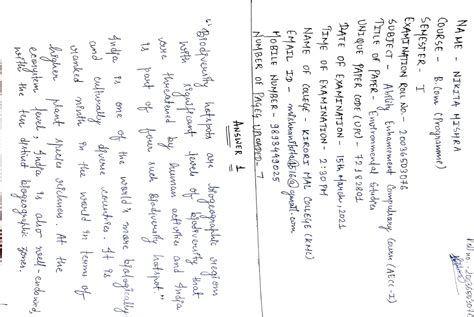 Roll no - 20036503076
NAME - NIKITA MISHRA
COURSE - B.Com (Programme)
SEMESTER - I
EXAMINATION ROLL NO. - 20036503076
SUBJECT - Ability Enhancement Compulsory Course (AECC-I)
TITLE OF PAPER - Environmental Studies
UNIQUE PAPER CODE (UPC) - 72182801
DATE OF EXAMINATION - 15th March, 2021
TIME OF EXAMINATION - 2:30 PM
NAME OF COLLEGE - KIRORI MAL COLLEGE (KMC)
EMAIL ID - @gmail.com
MOBILE NUMBER - 9893449025
NUMBER OF PAGES UPLOADED - 7
ANSWER 1
"Biodiversity hotspots are biogeographic regions
with significant levels of biodiversity that
are threatened by human activities and India
is part of four such biodiversity hotspot."
India is one of the world's more biologically
and culturally diverse countries. It is
ranked ninth in the world in terms of
higher plant species richness. At the
ecosystem level, India is also well-endowed,
with the ten distinct biogeographic zones.